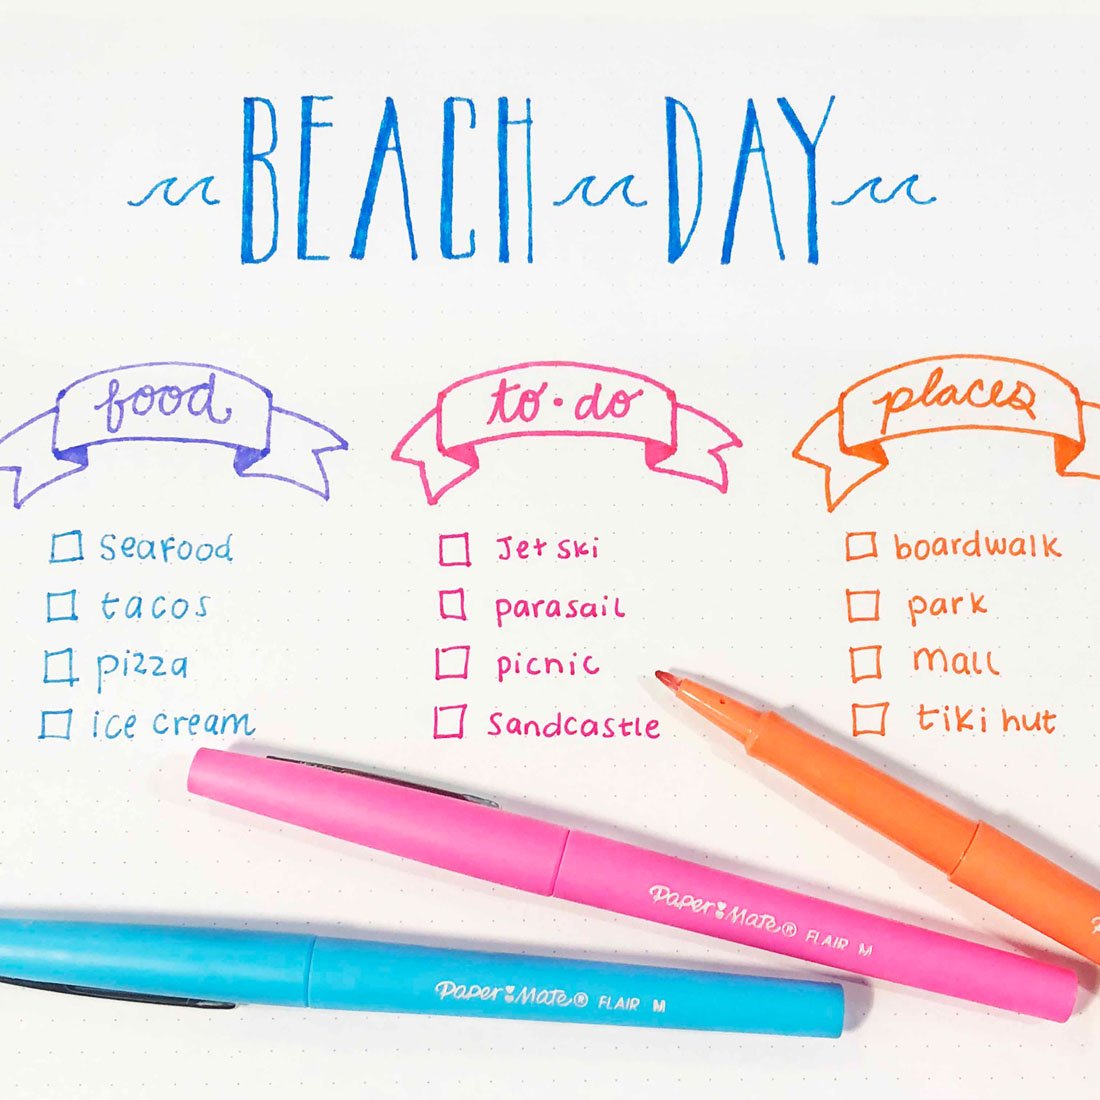 BEACH DAY
food
seafood
tacos
pizza
ice cream
to·do
Jet ski
parasail
picnic
Sandcastle
places
boardwalk
park
Mall
tiki hut
Paper Mate® FLAIR M
Paper Mate® FLAIR M